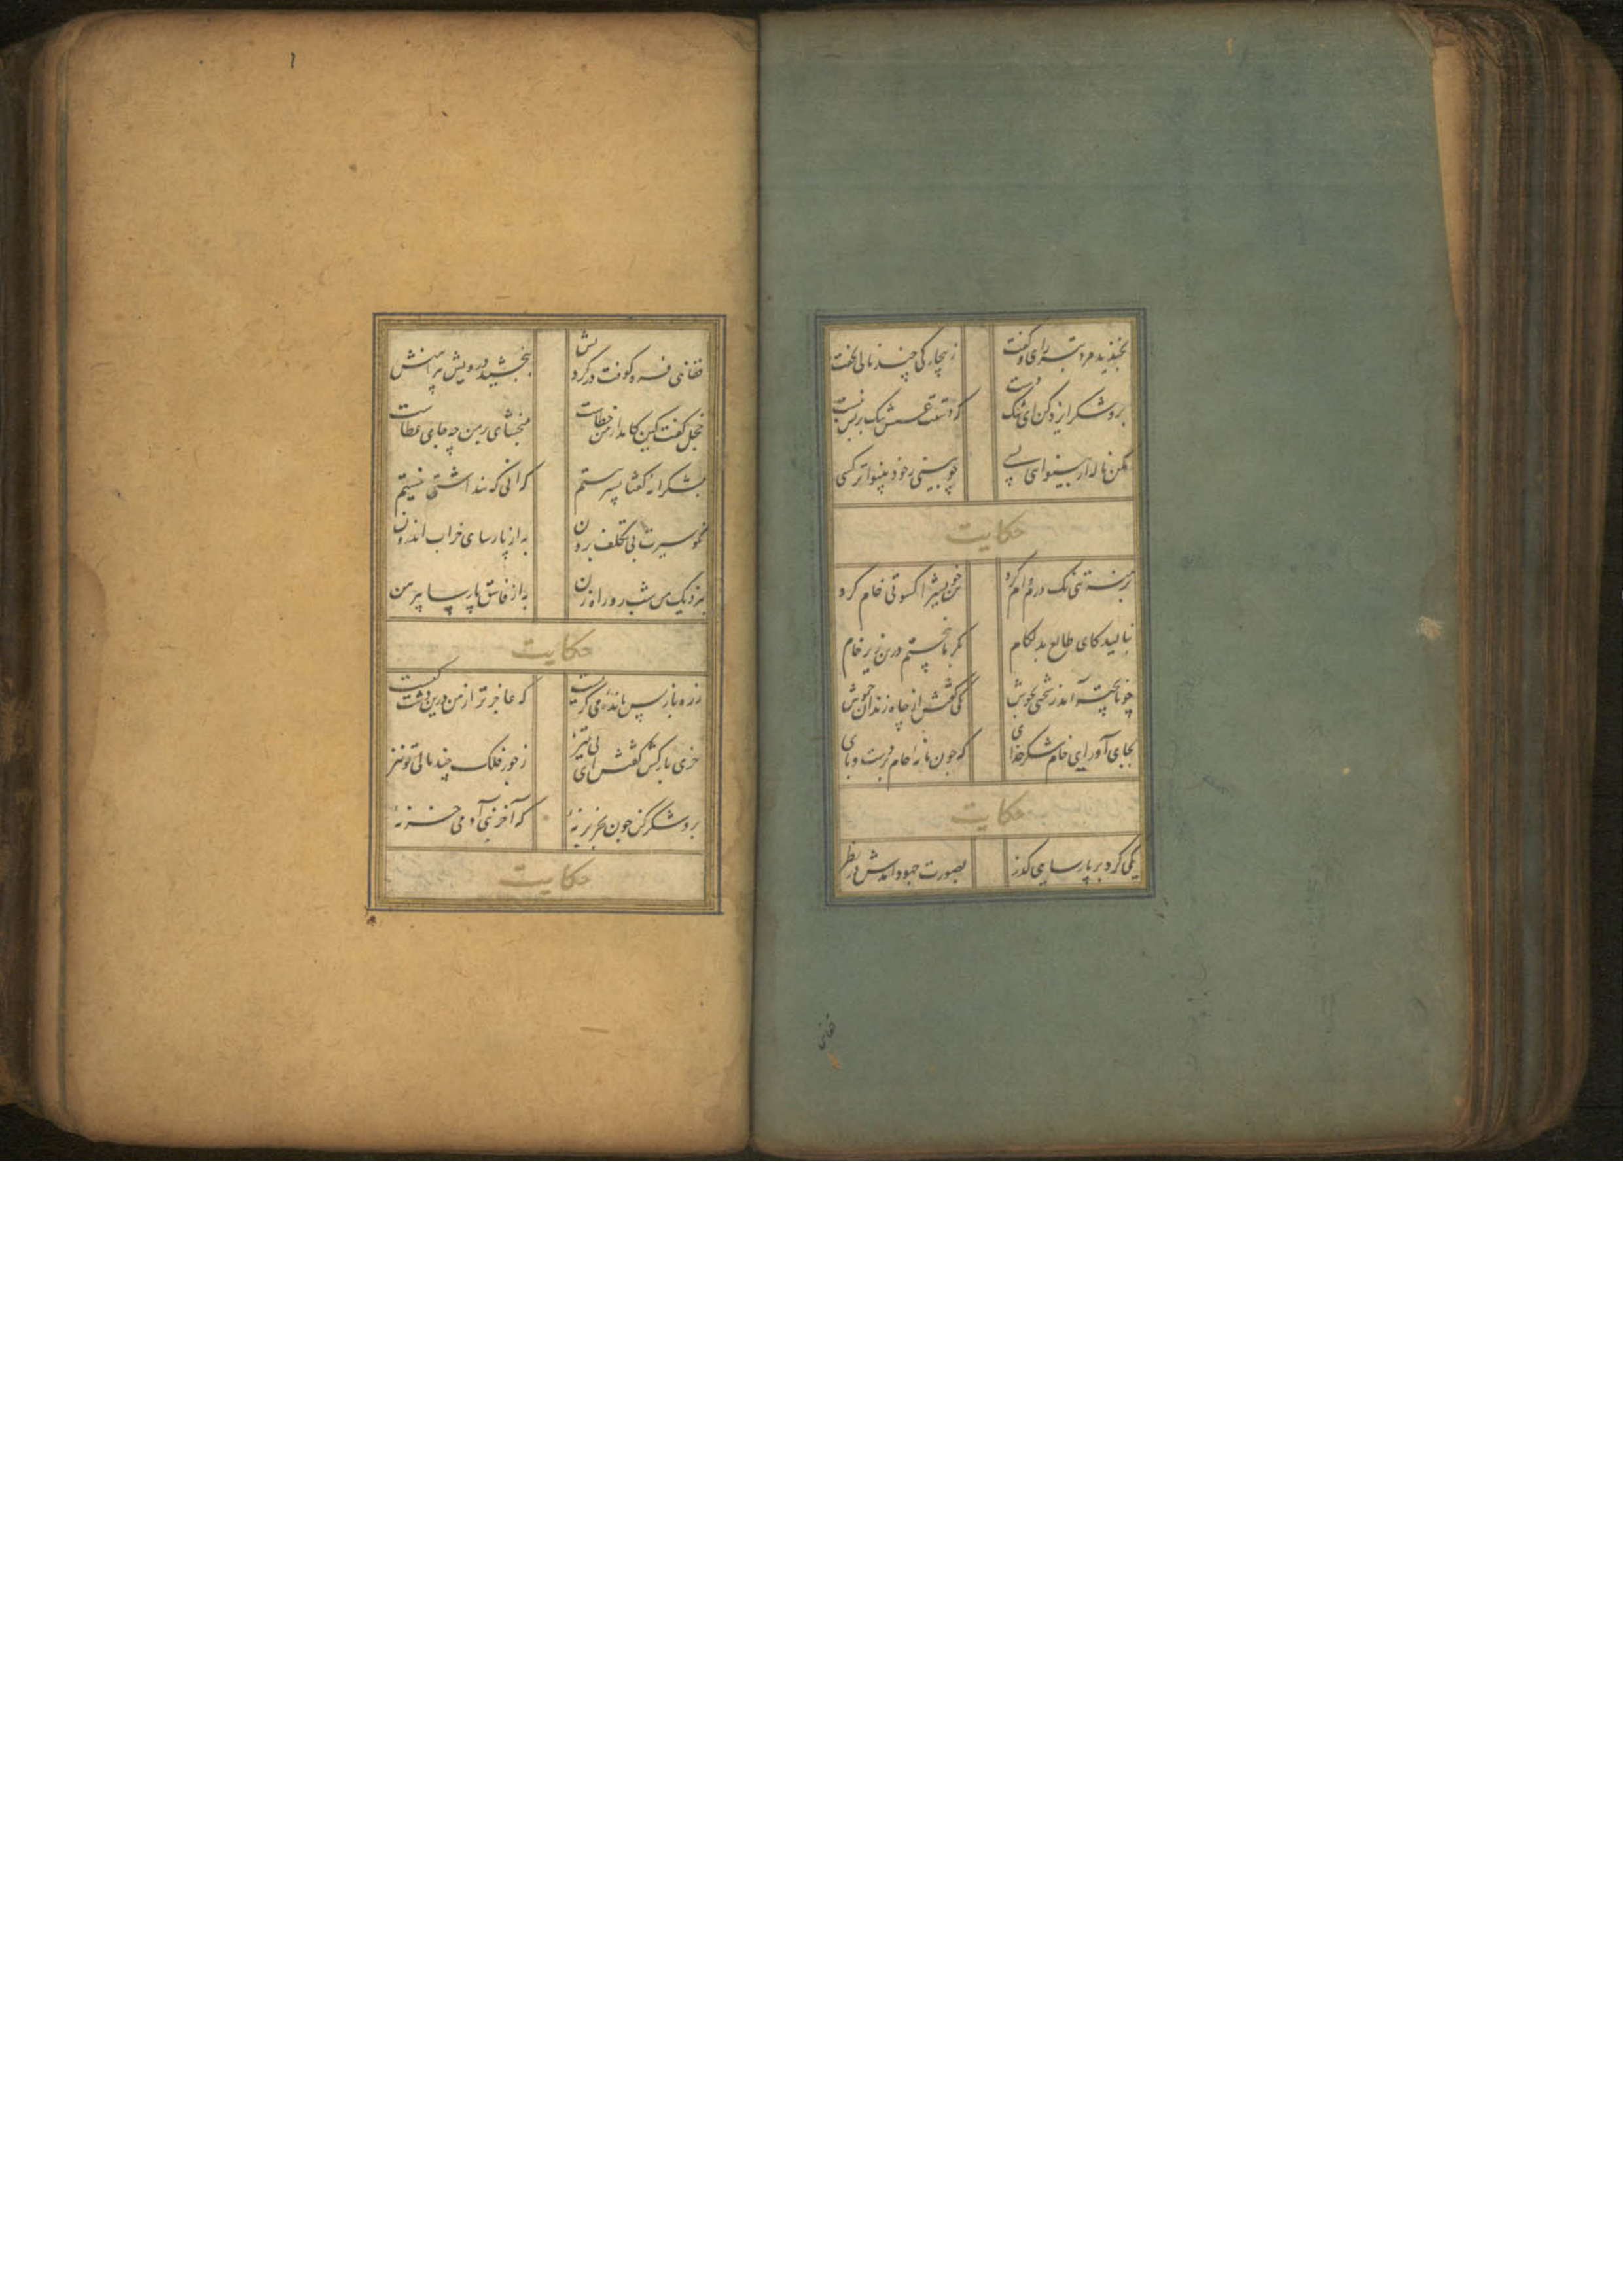 بخندید دزد تبه رای و گفت ز بیچارکی چند نالی بخفت
برو شکر ایزد کن ای تنک دست که دستت عسس تنک بر پس نبست
مکن ناله از بینوای بسی چو بینی ز خود بینواتر کسی
حکایت
برهنه تنی یک درم وام کرد تن خویش را کسوتی خام کرد
بنالید کای طالع بد لکام بکرما بپختم درین زیر خام
چو ناپخته آمد ز سختی بجوش یکی کفتش از چاه زندان خموش
بجای آور ای خام شکر خدای که چون ما نهٔ خام بر دست و پای
حکایت
یکی کرد بر پارسایی کذر بصورت جهود آمدش در نظر
قفایی
قفایی فرو کوفت بر کردنش ببخشید درویش پیراهنش
خجل کفت کین کامد از من خطاست ببخشای بر من چه جای عطاست
بشکرانه کفتا بسر بیستم که آنی که پنداشتی نیستم
نکو سیرت بی تکلف برون به از پارسای خراب اندرون
بنزدیک من شب رو راه زن به از فاسق پارسا پیرهن
حکایت
ز ره باز پس ماندهٔ می کریست که عاجزتر از من درین دشت کیست
خری بارکش کفتش ای بی تمیز ز جور فلک چند نالی تو نیز
برو شکر کن چون بخر بر نهٔ که آخر بنی آدمی خر نهٔ
حکایت